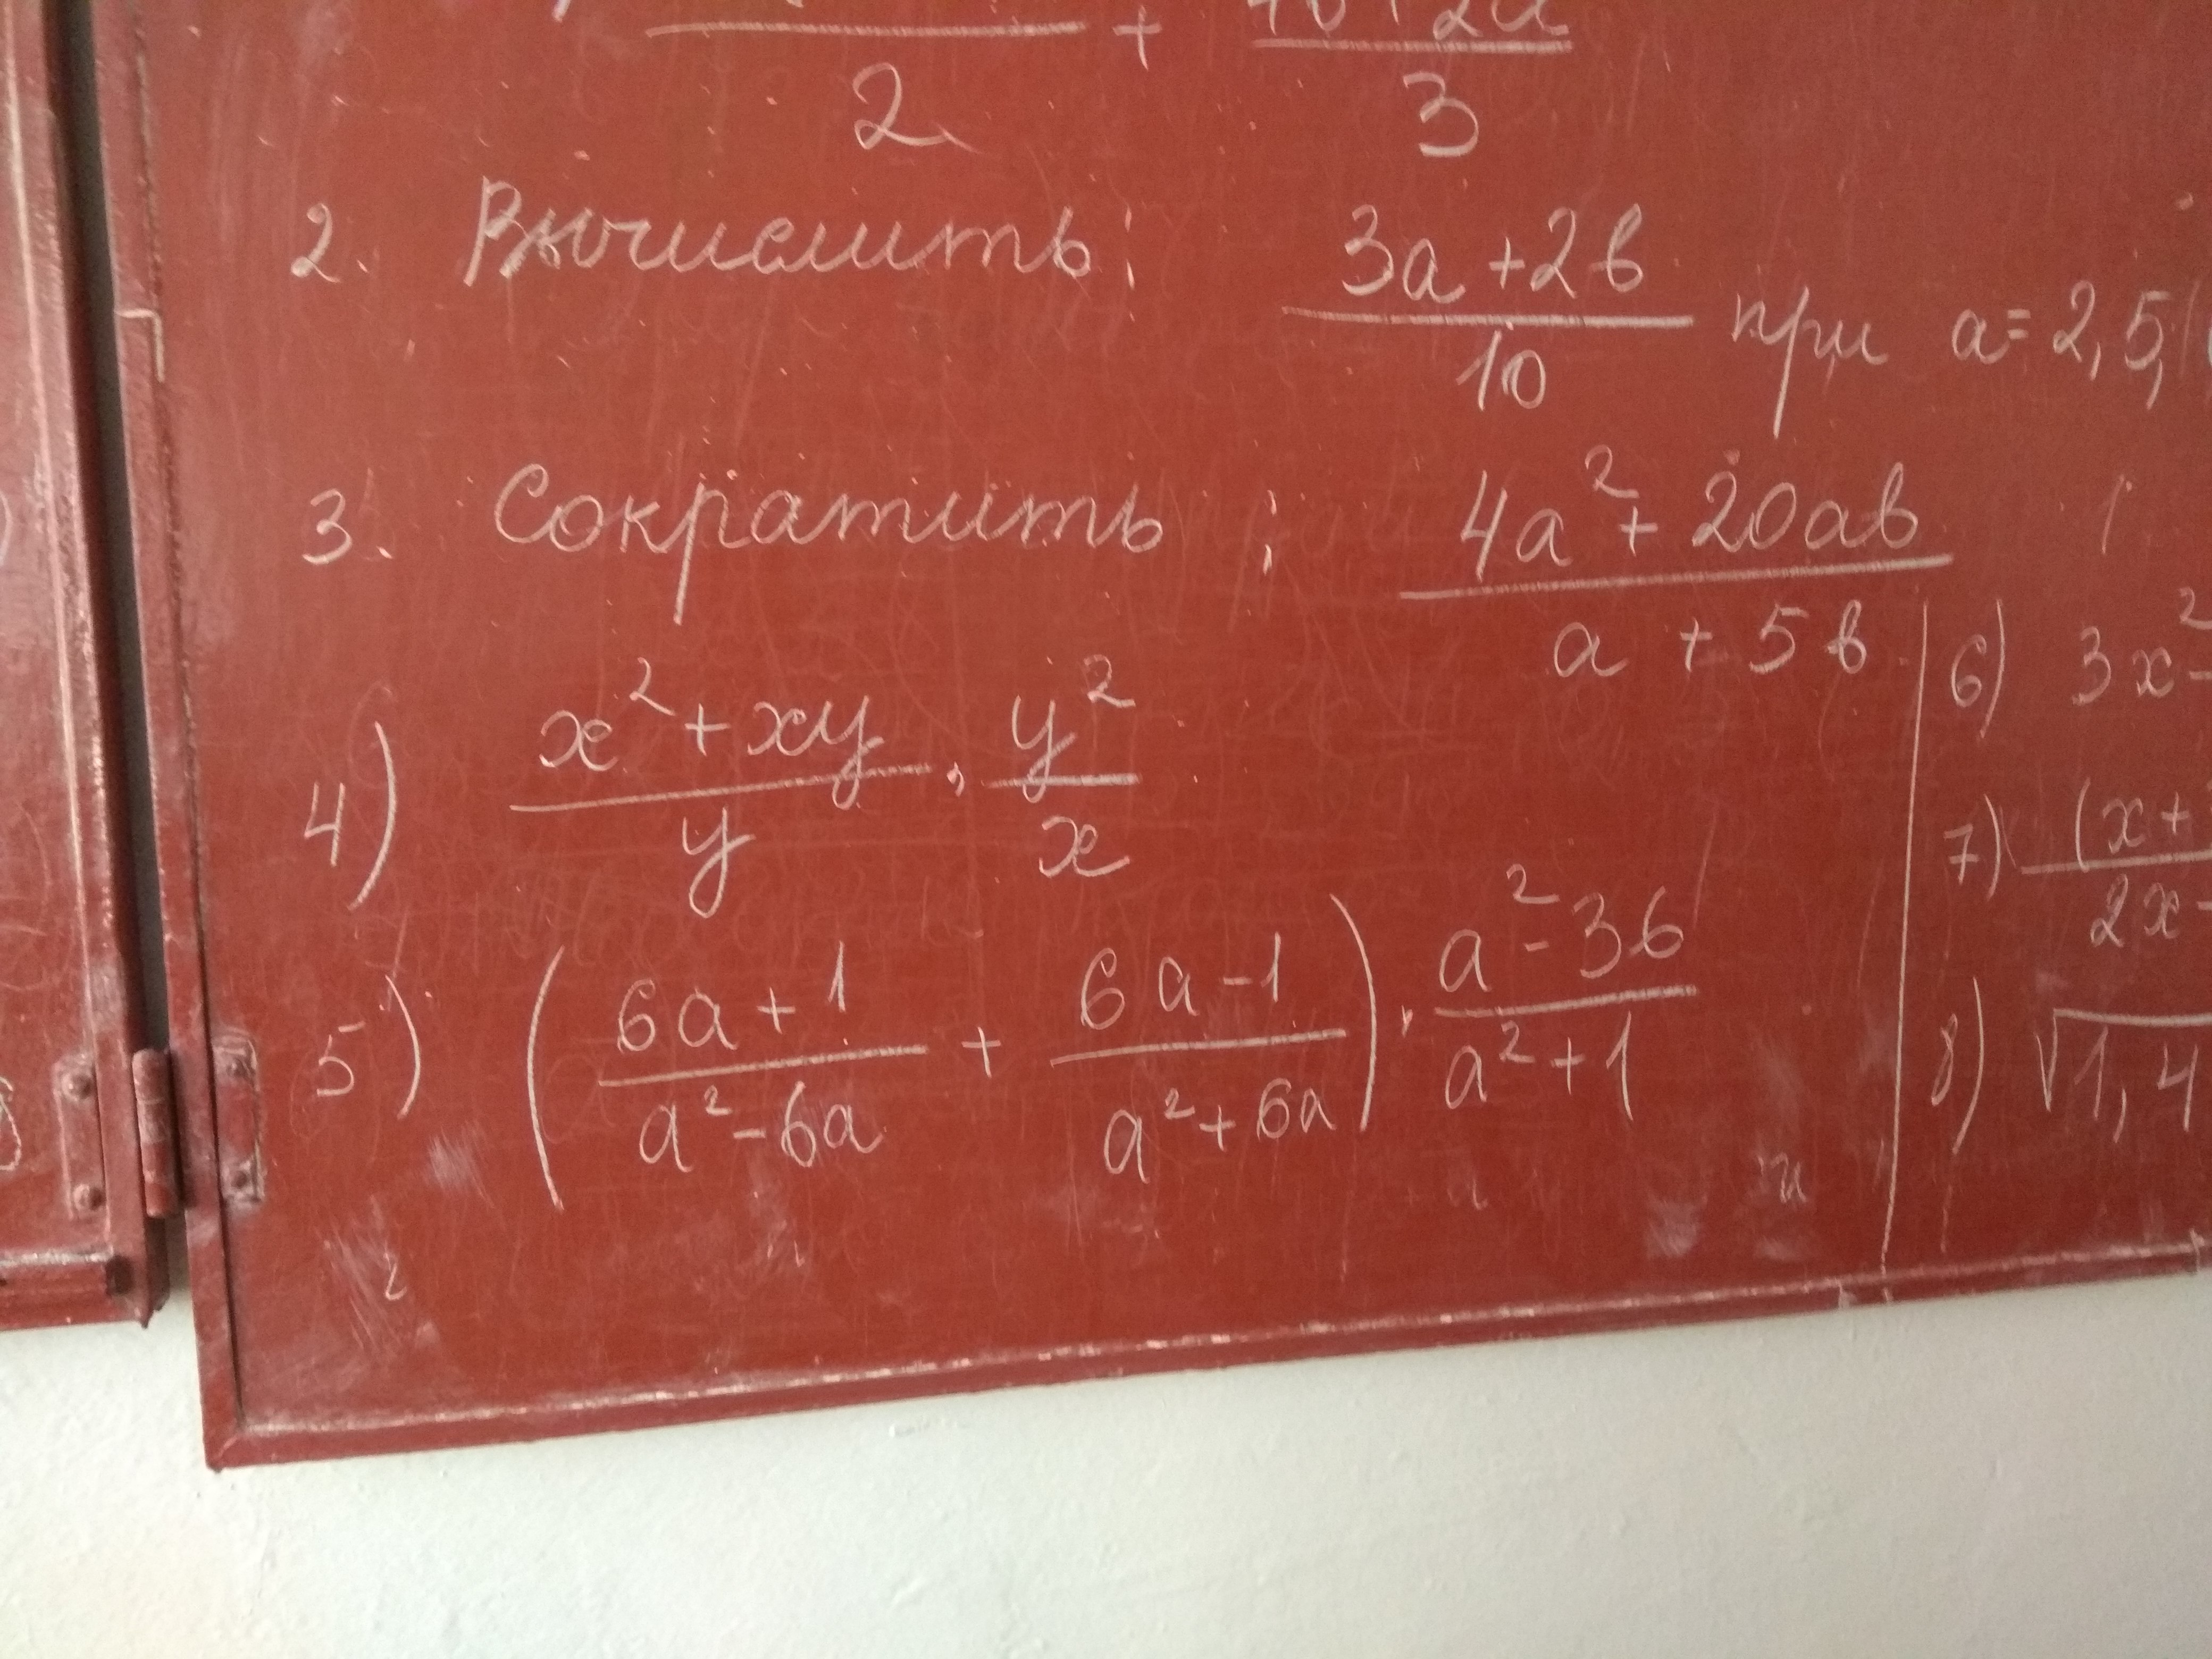 2 + 3
2. Вычислить: (3a+2в)/10 при a=2,5,
3. Сократить: (4a²+20aв)/(a+5в)
4) (x²+xy)/y · y²/x
5) ((6a+1)/(a²-6a) + (6a-1)/(a²+6a)) · (a²-36)/(a²+1)
6) 3x²-
7) (x+ / 2x-
8) √1,4